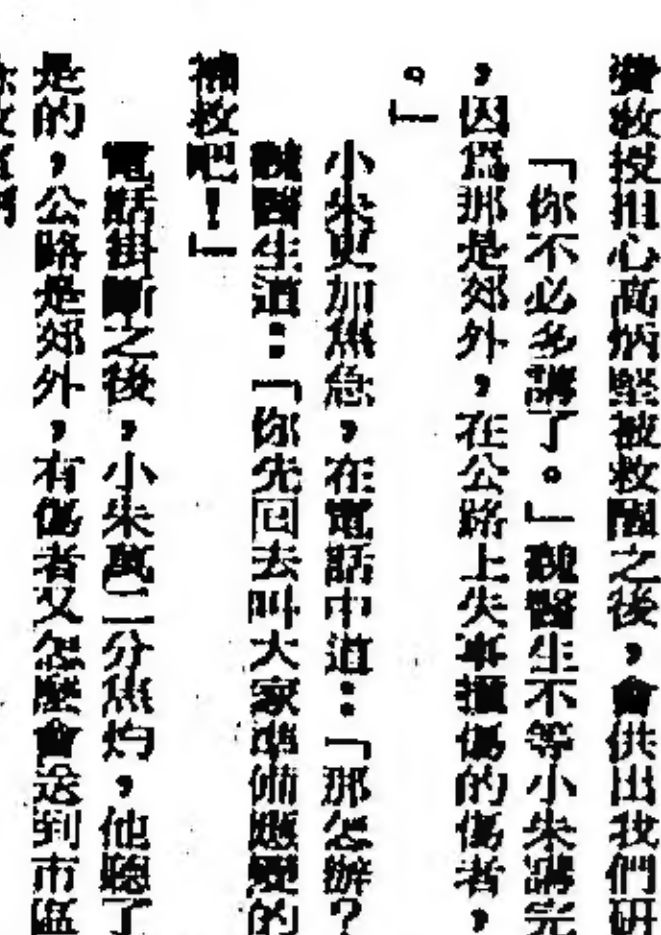 教授担心高炳堅被救醒之後，會供出我們研
「你不必多講了。」魏醫生不等小朱講完
，因爲那是郊外，在公路上失事撞傷的傷者，
。」
小朱更加焦急，在電話中道：「那怎辦？
魏醫生道：「你先回去叫大家準備應變的
補救吧！」
電話掛斷之後，小朱萬二分焦灼，他聽了
是的，公路是郊外，有傷者又怎麼會送到市區